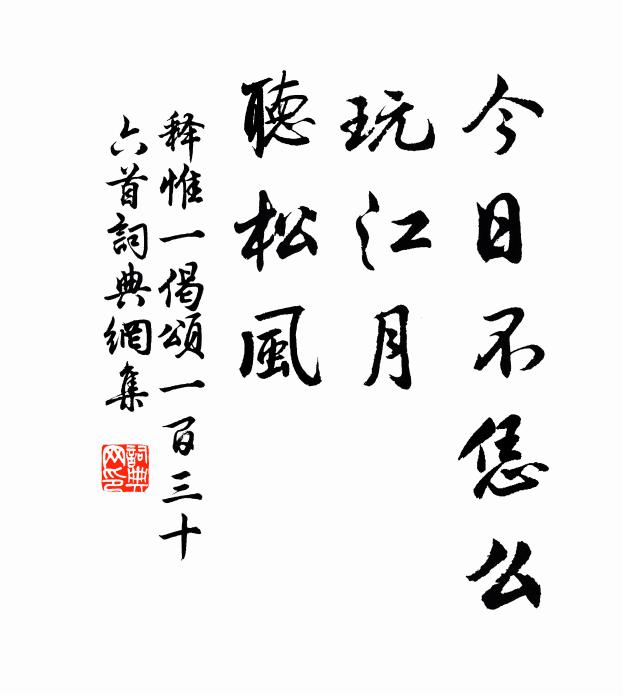 今日不恁么
玩江月
聽松風
释惟一偈頌一百三十
六首詞典網集
詞典
网印